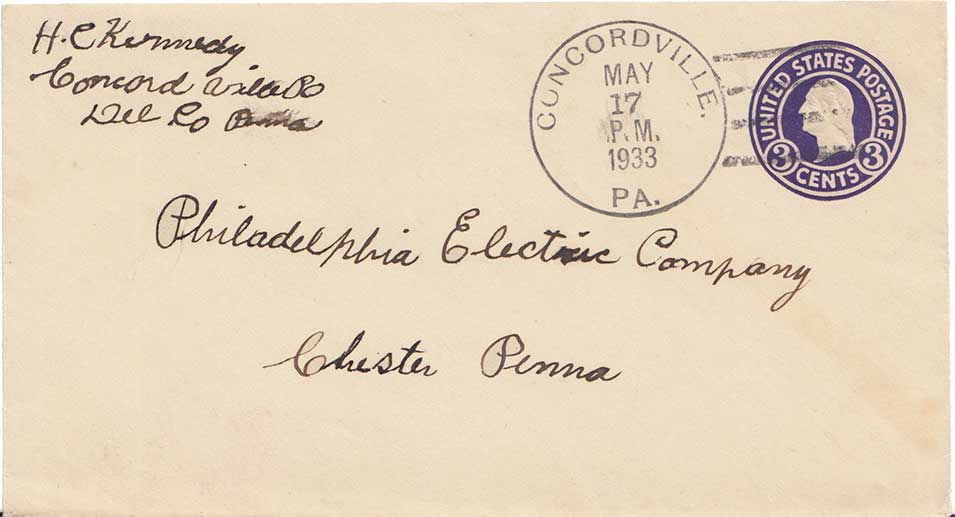 H. C Kennedy
Concord Ville
Del Co Penna
CONCORDVILLE.
MAY
17
P.M.
1933
PA.
UNITED STATES POSTAGE
3 CENTS 3
Philadelphia Electric Company
Chester Penna